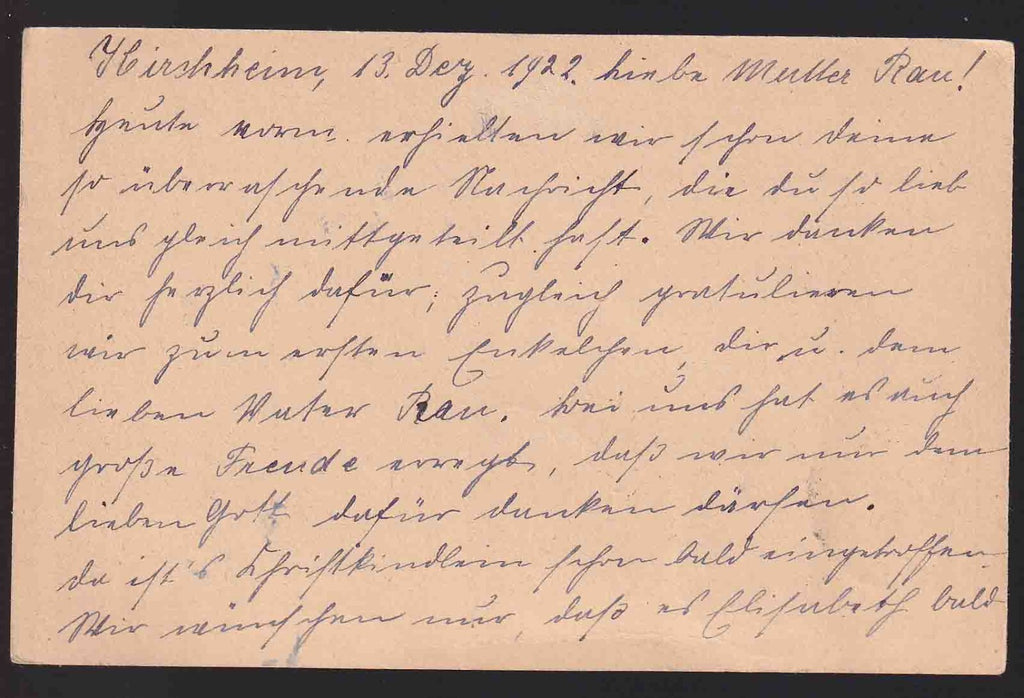 Kirchheim, 13. Dez. 1922. Liebe Mutter Rau!
Heute vorm. erhielten wir schon deine
so überraschende Nachricht, die du so lieb
uns gleich mitgeteilt hast. Wir danken
dir herzlich dafür; zugleich gratulieren
wir zum ersten Enkelchen, dir u. dem
lieben Vater Rau. Bei uns hat es auch
große Freude erregt, daß wir nur dem
lieben Gott dafür danken dürfen.
Da ist's Christkindlein schon bald eingetroffen.
Wir wünschen nur, daß es Elisabeth bald